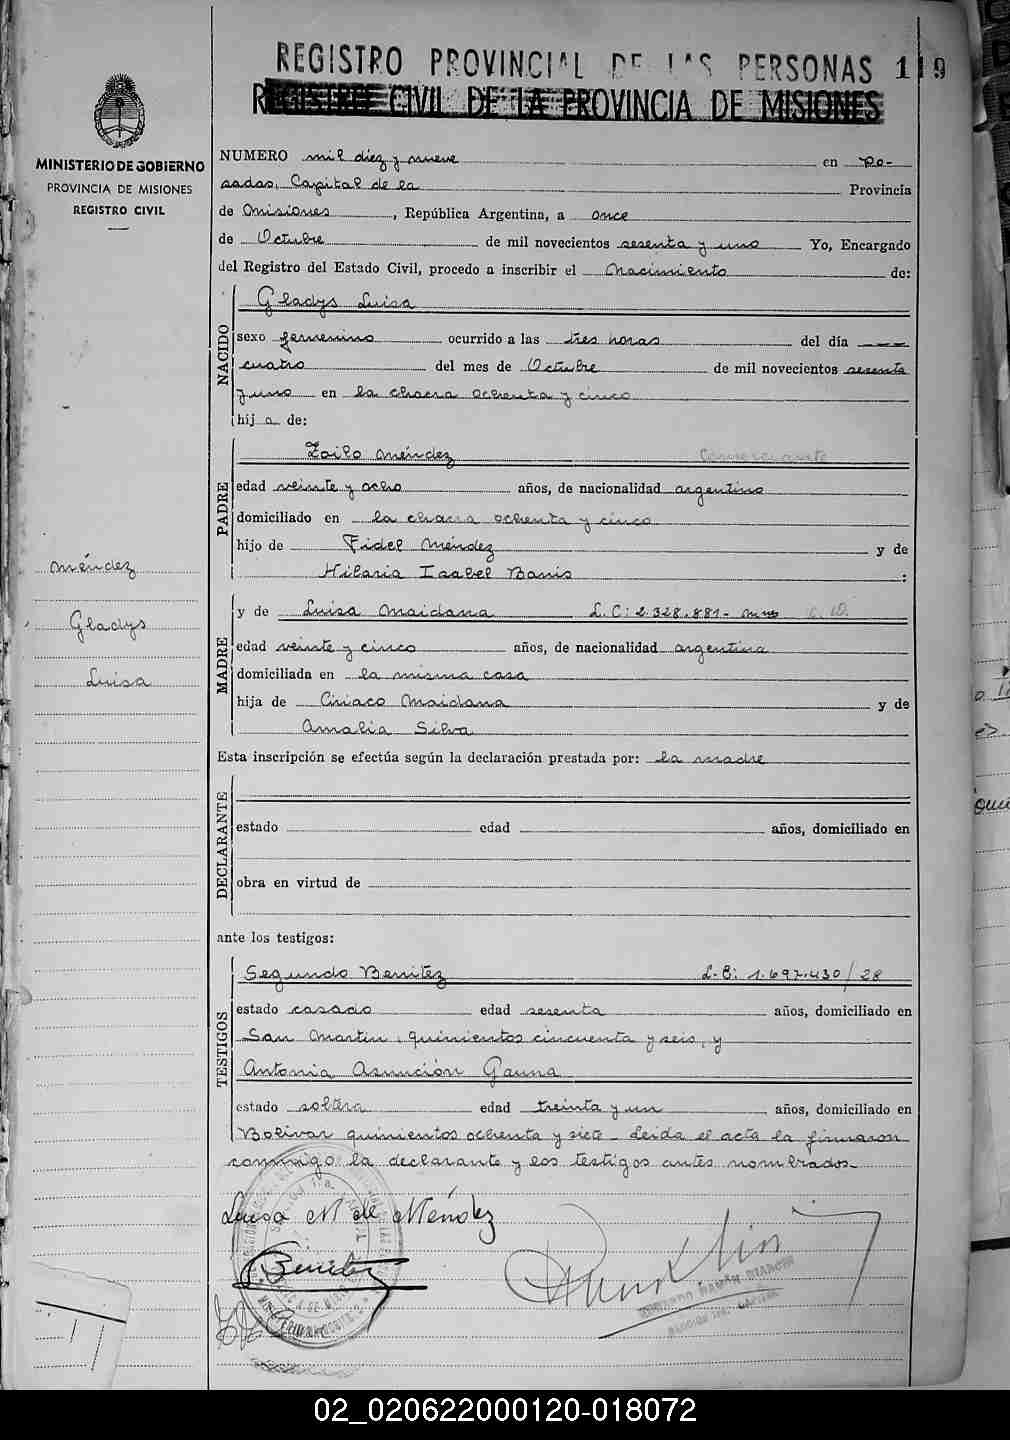 REGISTRO PROVINCIAL DE LAS PERSONAS 119
REGISTRO CIVIL DE LA PROVINCIA DE MISIONES
MINISTERIO DE GOBIERNO
PROVINCIA DE MISIONES
REGISTRO CIVIL
NUMERO mil diez y nueve en Po-
sadas, Capital de la Provincia
de Misiones, República Argentina, a once
de Octubre de mil novecientos sesenta y uno Yo, Encargado
del Registro del Estado Civil, procedo a inscribir el Nacimiento de:
NACIDO
Gladys Luisa
sexo femenino ocurrido a las tres horas del día
cuatro del mes de Octubre de mil novecientos sesenta
y uno en la chacra ochenta y cinco
hij a de:
PADRE
Zoilo Méndez Comerciante
edad veinte y ocho años, de nacionalidad argentino
domiciliado en la chacra ochenta y cinco
hijo de Fidel Méndez y de
Hilaria Isabel Banis :
Méndez
Gladys
Luisa
MADRE
y de Luisa Maidana L.C: 2.328.881-
edad veinte y cinco años, de nacionalidad argentina
domiciliada en la misma casa
hija de Ciriaco Maidana y de
Amalia Silva
Esta inscripción se efectúa según la declaración prestada por: la madre
DECLARANTE
estado edad años, domiciliado en
obra en virtud de
ante los testigos:
TESTIGOS
Segundo Benitez L.E: 1.697.430/28
estado casado edad sesenta años, domiciliado en
San Martin, quinientos cincuenta y seis, y
Antonia Asunción Gauna
estado soltera edad treinta y un años, domiciliado en
Bolivar quinientos ochenta y siete - Leida el acta la firmaron
conmigo la declarante y los testigos antes nombrados-
Luisa M de Méndez
Benitez
02_020622000120-018072